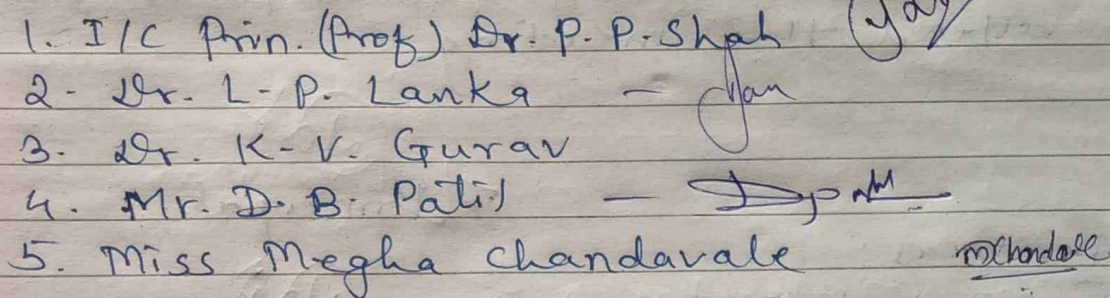 1. I/C Prin. (Prof) Dr. P. P. Shah
2- Dr. L-P. Lanka -
3- Dr. K-V. Gurav
4. Mr. D. B. Patil -
5. Miss Megha Chandavale